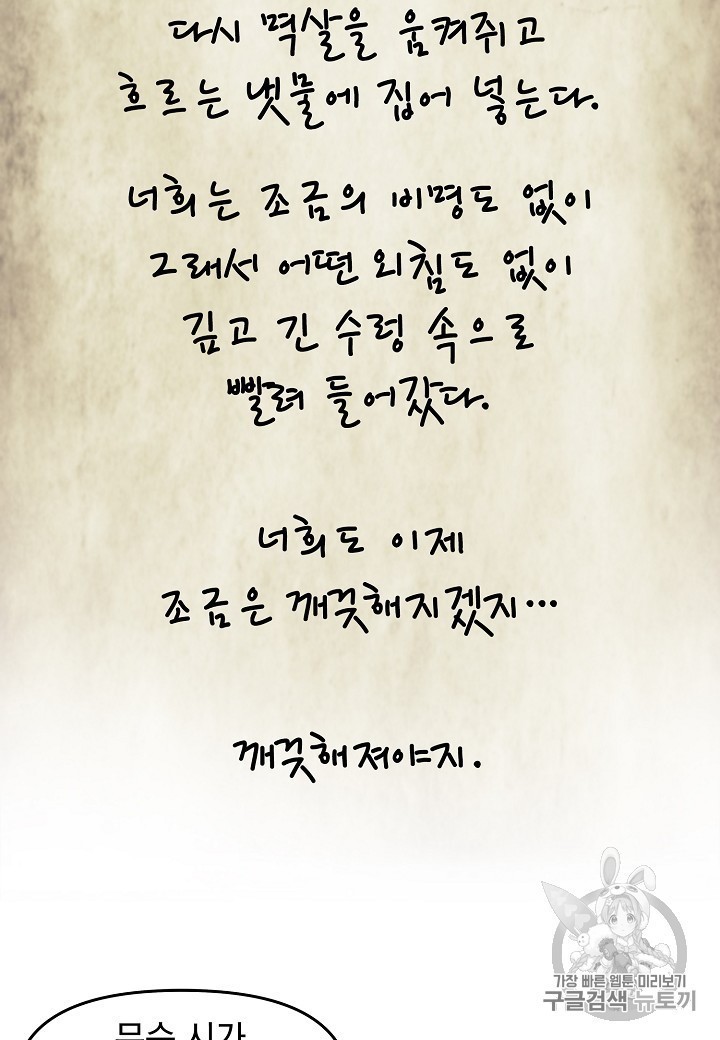 다시 멱살을 움켜쥐고
흐르는 냇물에 집어 넣는다.
너희는 조금의 비명도 없이
그래서 어떤 외침도 없이
깊고 긴 수렁 속으로
빨려 들어갔다.
너희도 이제
조금은 깨끗해지겠지…
깨끗해져야지.
가장 빠른 웹툰 미리보기
구글검색 뉴토끼